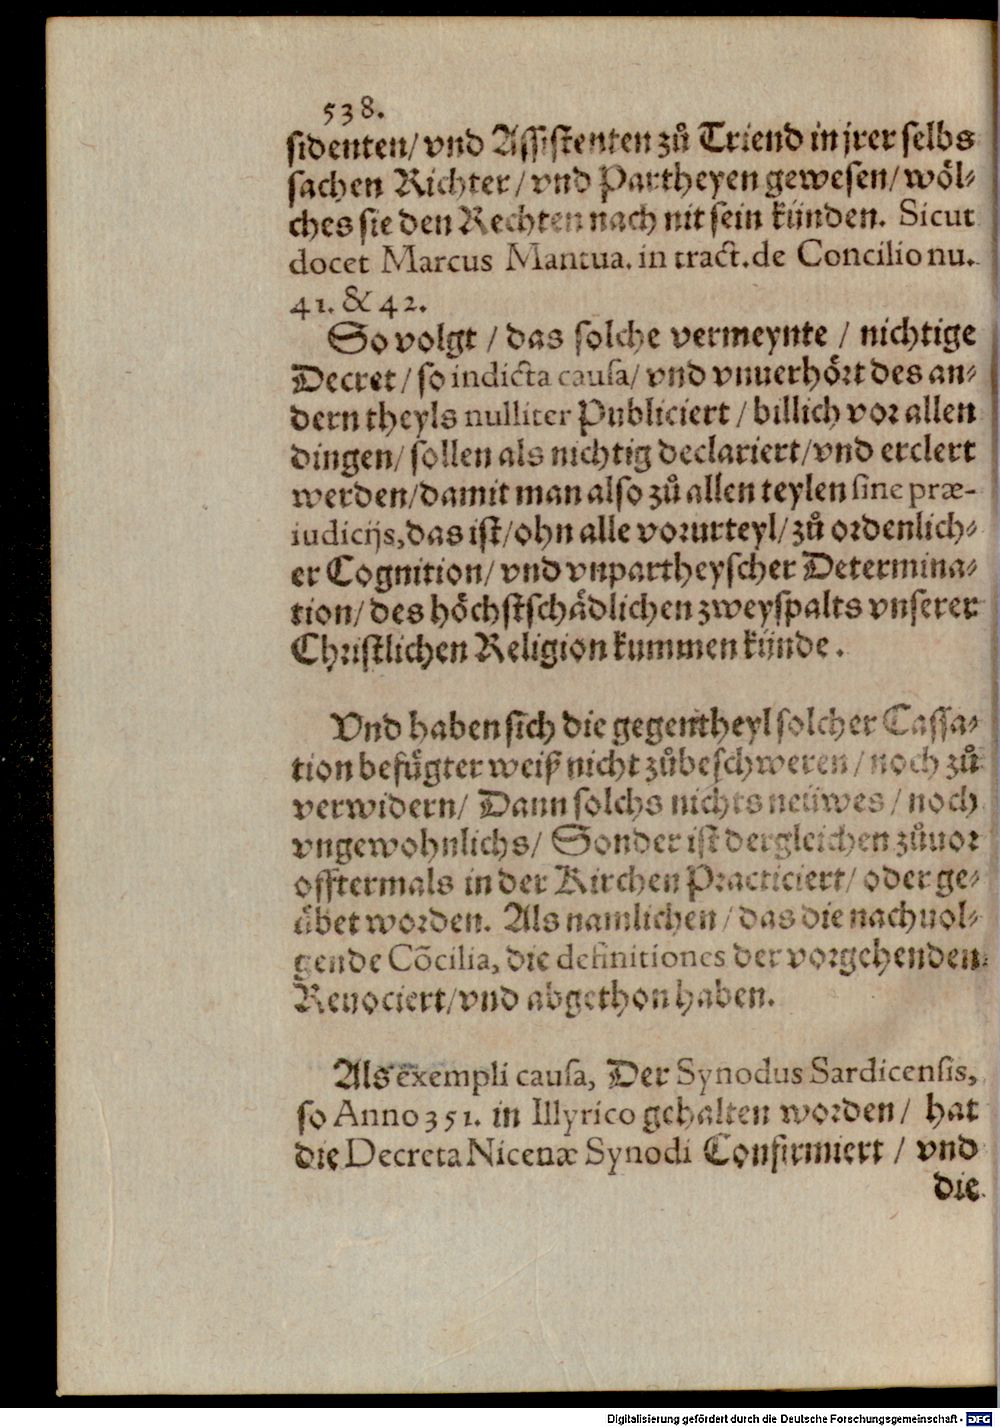 538.
sidenten/ vnd Assistenten zů Triend in jrer selbs
sachen Richter/ vnd Partheyen gewesen/ wöl-
ches sie den Rechten nach nit sein künden. Sicut
docet Marcus Mantua. in tract. de Concilio nu.
41. & 42.
So volgt / das solche vermeynte / nichtige
Decret/ so indicta causa/ vnd vnuerhört des an-
dern theyls nulliter Publiciert / billich vor allen
dingen/ sollen als nichtig declariert/ vnd erclert
werden/ damit man also zů allen teylen sine præ-
iudicijs, das ist/ ohn alle vorurteyl/ zů ordenlich-
er Cognition/ vnd vnpartheyscher Determina-
tion/ des höchstschädlichen zweyspalts vnserer
Christlichen Religion kummen künde.
Vnd haben sich die gegentheyl solcher Cassa-
tion befügter weiß nicht zůbeschweren / noch zů
verwidern/ Dann solchs nichts neüwes / noch
vngewohnlichs/ Sonder ist dergleichen zůuor
offtermals in der Kirchen Practiciert/ oder ge-
übet worden. Als namlichen / das die nachuol-
gende Cõcilia, die definitiones der vorgehenden
Reuociert/ vnd abgethon haben.
Als exempli causa, Der Synodus Sardicensis,
so Anno 351. in Illyrico gehalten worden/ hat
die Decreta Nicenæ Synodi Confirmiert / vnd
die
Digitalisierung gefördert durch die Deutsche Forschungsgemeinschaft - DFG